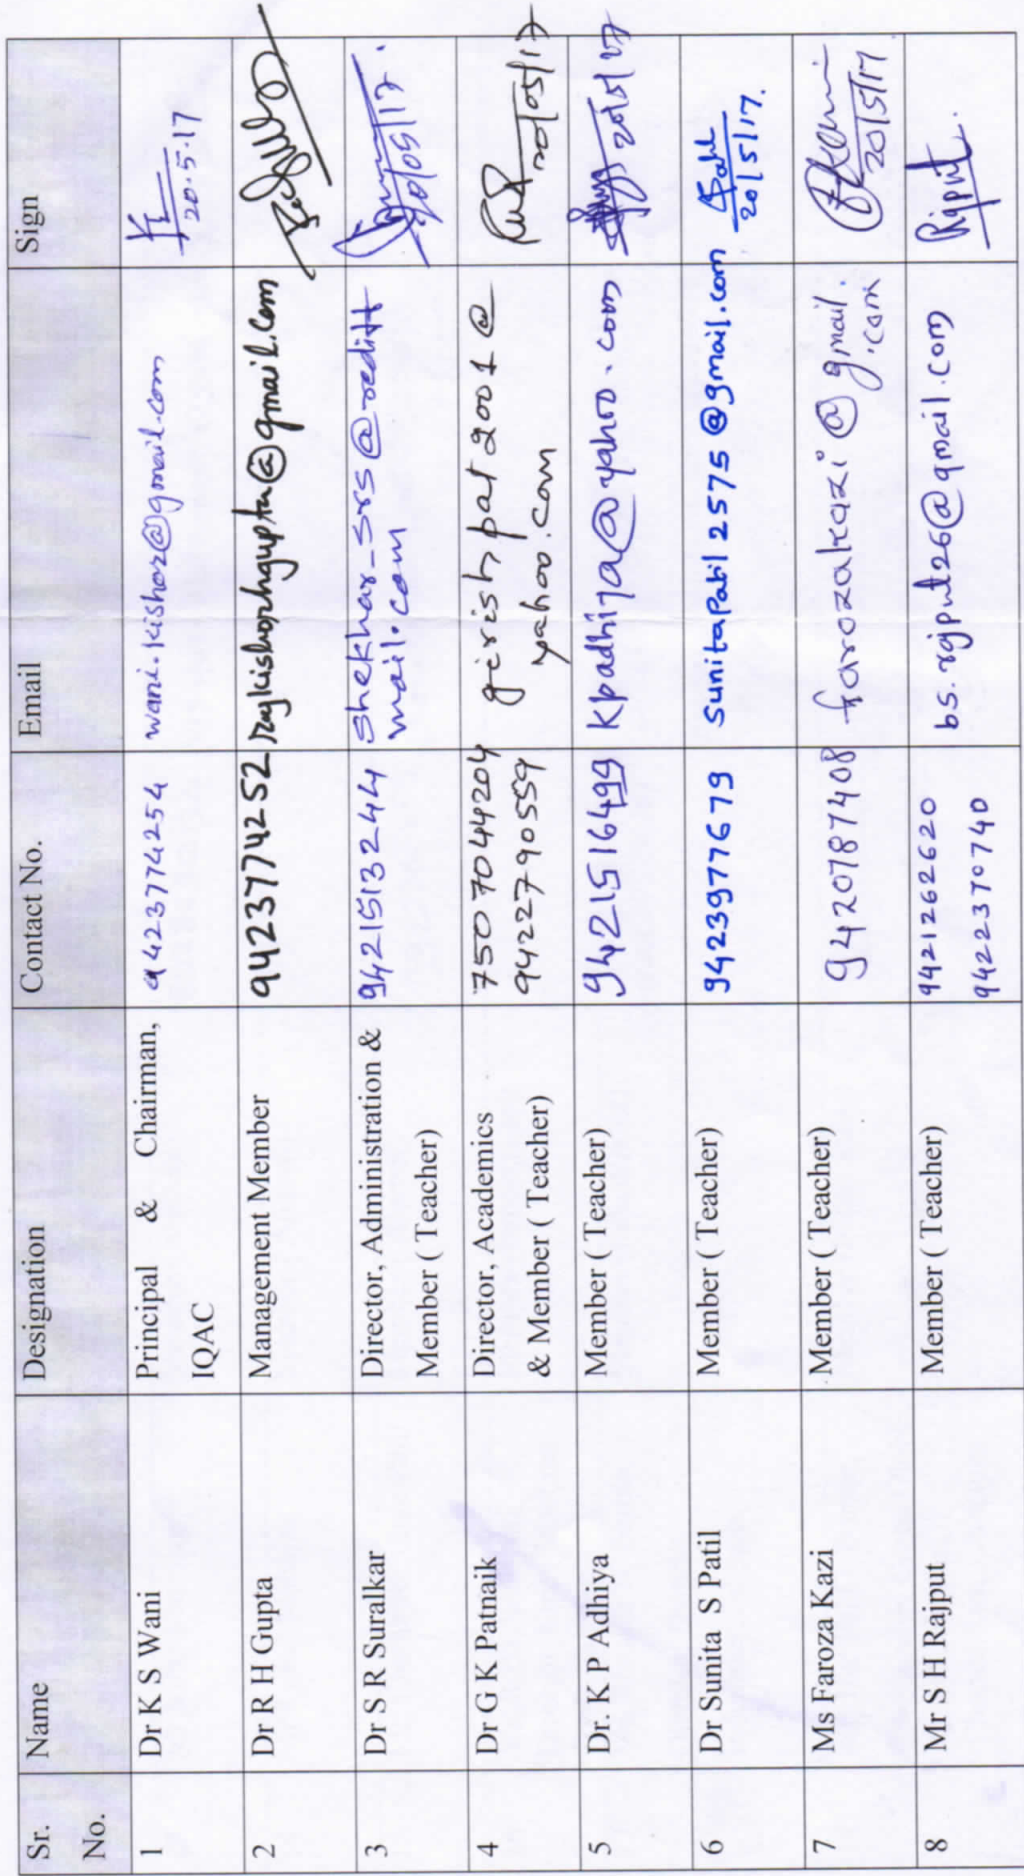 Sr. No. Name Designation Contact No. Email Sign
1 Dr K S Wani Principal & Chairman, IQAC 9423774254 wani.kishor@gmail.com 20.5.17
2 Dr R H Gupta Management Member 9423774252 rajkishorhgupta@gmail.com
3 Dr S R Suralkar Director, Administration & 9421513244 shekhar_srs@rediff
Member ( Teacher) mail.com 20/05/17.
4 Dr G K Patnaik Director, Academics 7507044204 girishpat2001@
& Member ( Teacher) 9422790559 yahoo.com 20/05/17
5 Dr. K P Adhiya Member ( Teacher) 9421516499 kpadhiya@yahoo.com 20/5/17
6 Dr Sunita S Patil Member ( Teacher) 9423977679 sunitapatil2575@gmail.com 20/5/17.
7 Ms Faroza Kazi Member ( Teacher) 9420787408 farozakazi@gmail
.com 20/5/17
8 Mr S H Rajput Member ( Teacher) 9421262620 bsrajput26@gmail.com Rajput
9422370740